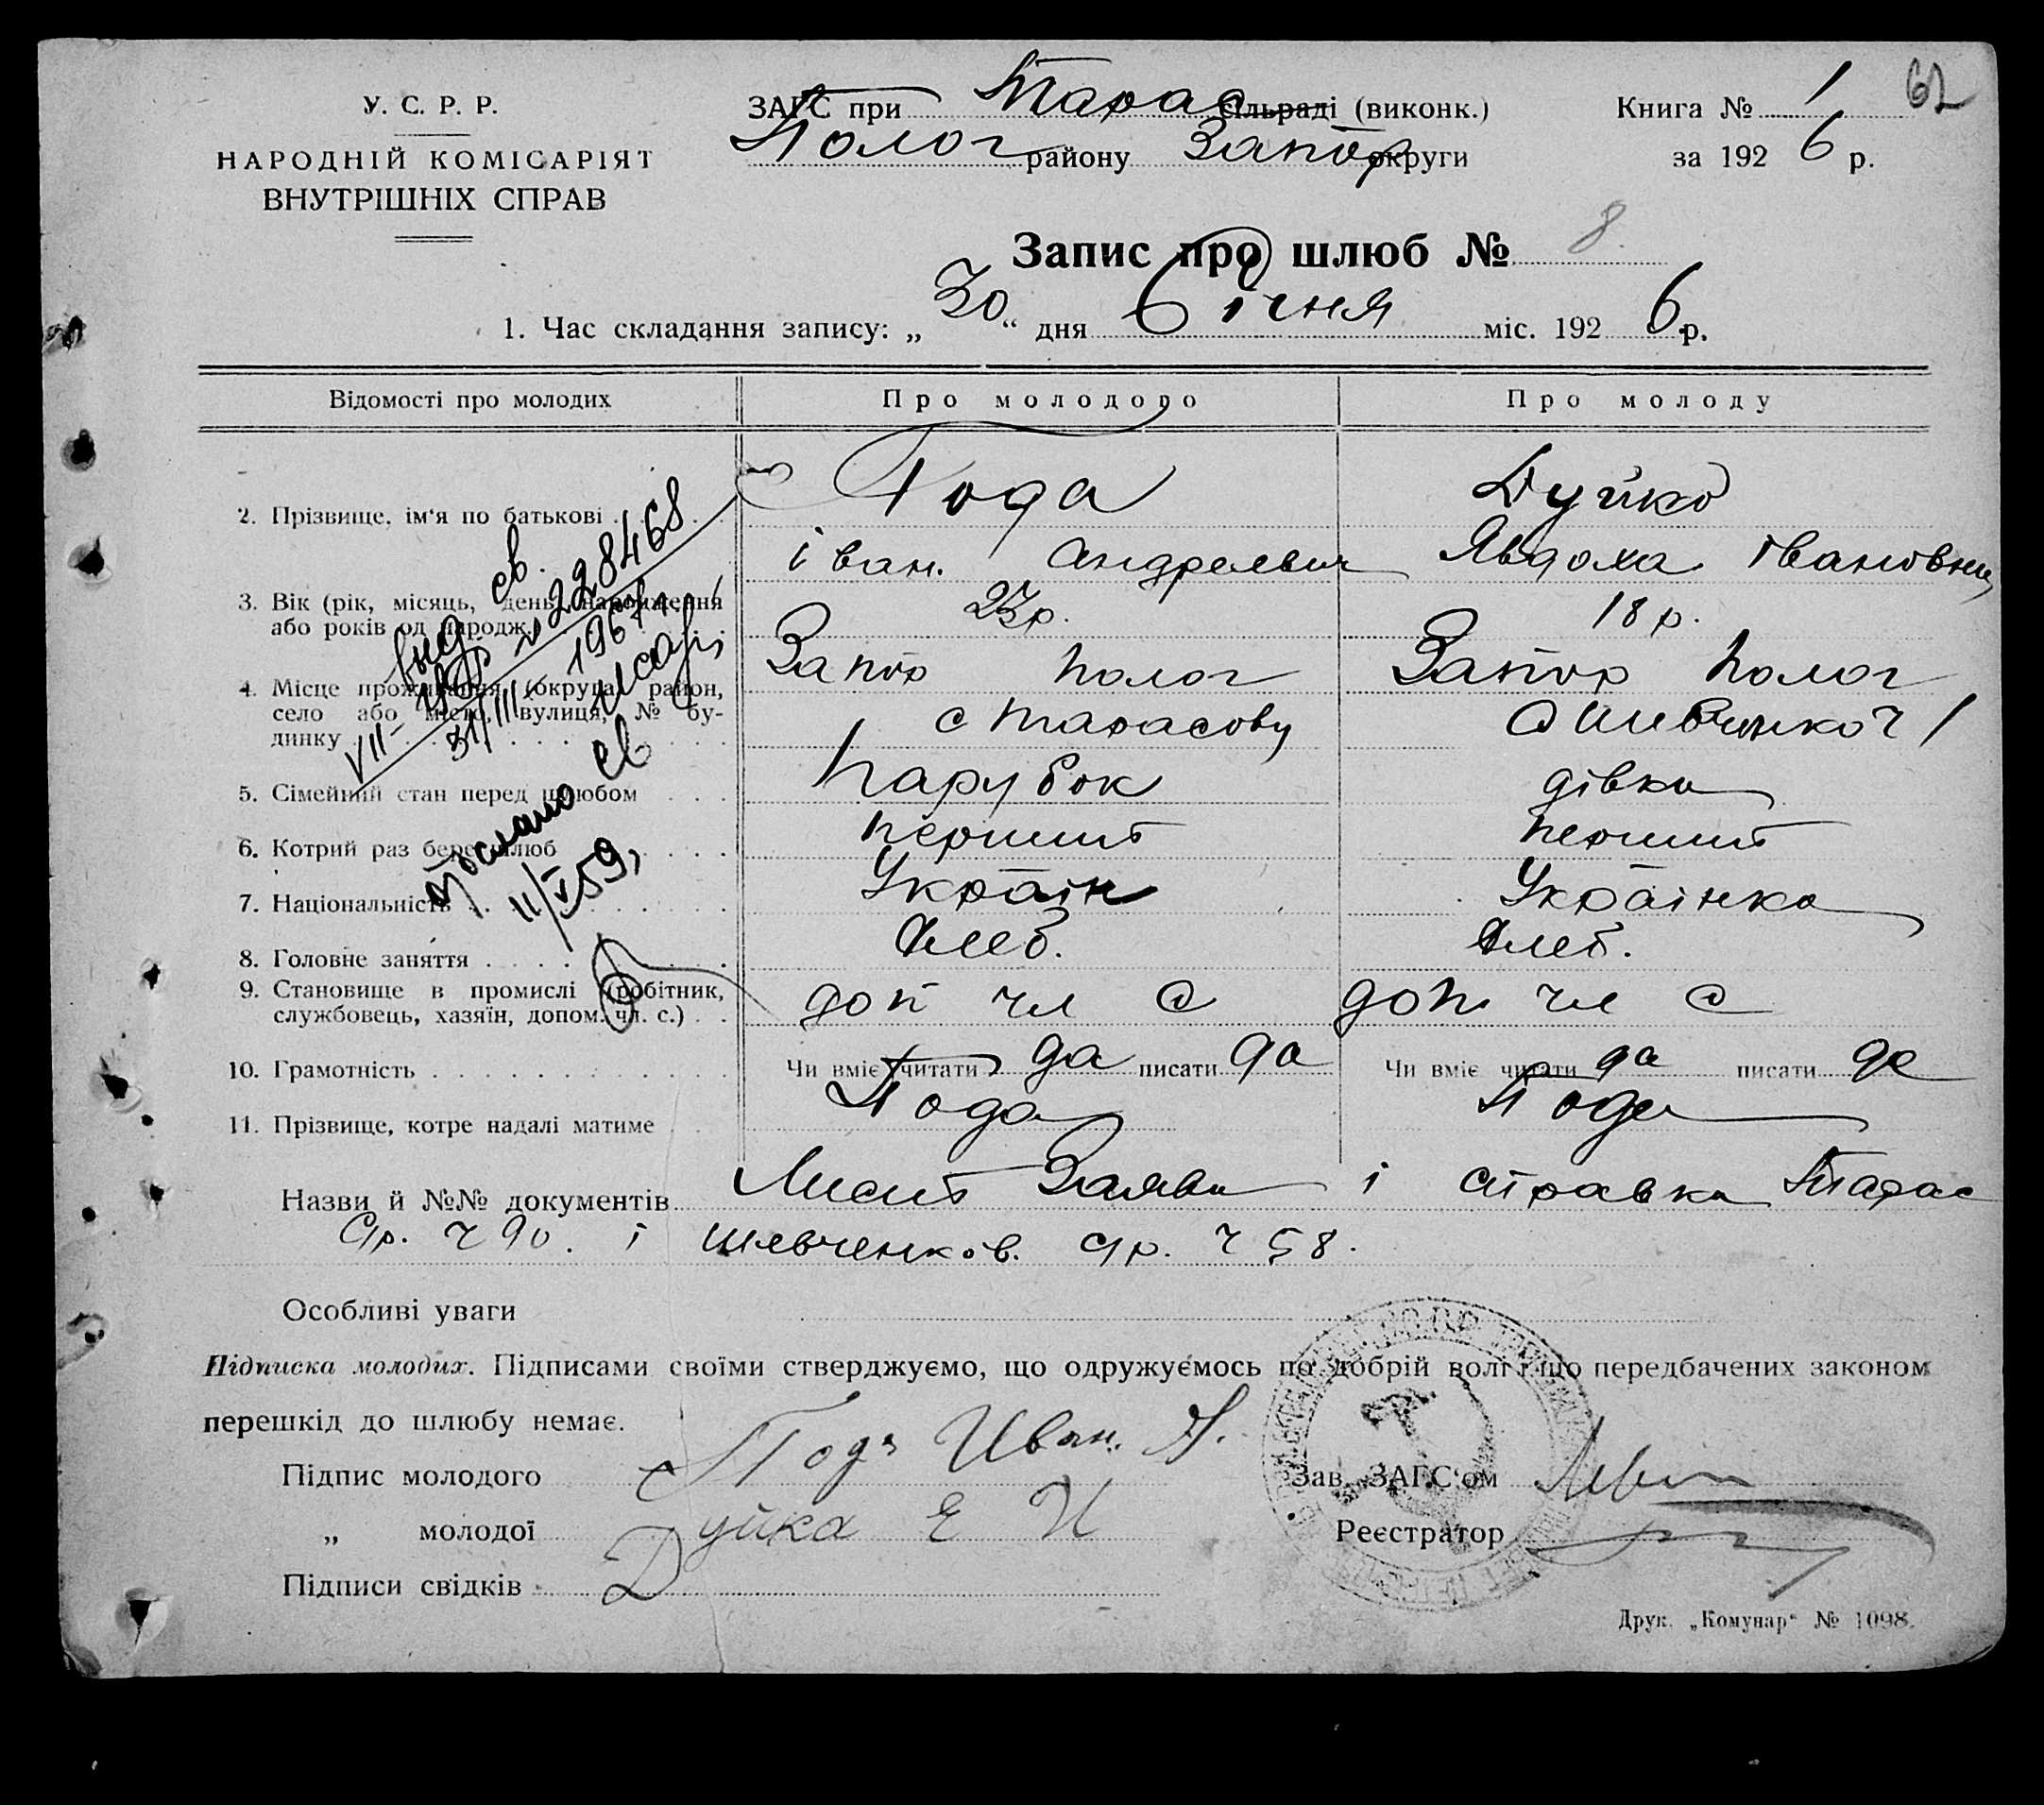 62
У. С. Р. Р.
НАРОДНІЙ КОМІСАРІЯТ
ВНУТРІШНІХ СПРАВ
ЗАГС при Тарас сільраді (виконк.)
Полог району Запор округи
Книга № 1
за 1926 р.
Запис про шлюб № 8
1. Час складання запису: „30“ дня Січня міс. 1926 р.
Відомості про молодих Про молодого Про молоду
2. Прізвище, ім'я по батькові Года Дуйко
іван. Андреевич Явдоха івановна
3. Вік (рік, місяць, день народження 23р. 18 р.
або років од народж.
4. Місце проживання (округа, район, Запор Полог Запор Полог
село або місто, вулиця, № бу- с Тарасовці с Шевченково
динку
5. Сімейний стан перед шлюбом Парубок дівка
6. Котрий раз бере шлюб перший перший
7. Національність Україн Українка
8. Головне заняття Хлеб. Хлеб.
9. Становище в промислі (робітник, доп чл с доп чл с
службовець, хазяїн, допом. чл. с.)
10. Грамотність Чи вміє читати да писати да Чи вміє читати да писати да
11. Прізвище, котре надалі матиме Года Года
вид св.
VII- № 228468
31/III-1967
послано св
11/V 59,
Назви й №№ документів Лист Заява і справка Тарас
С/р. ч 90. і Шевченков. с/р. ч 58.
Особливі уваги
Підписка молодих. Підписами своїми стверджуємо, що одружуємось по добрій волі і що передбачених законом
перешкід до шлюбу немає.
Підпис молодого Года Иван. А.
„ молодої Дуйка Е И
Підписи свідків
Зав. ЗАГС'ом
Реєстратор
Друк. „Комунар“ № 1098.